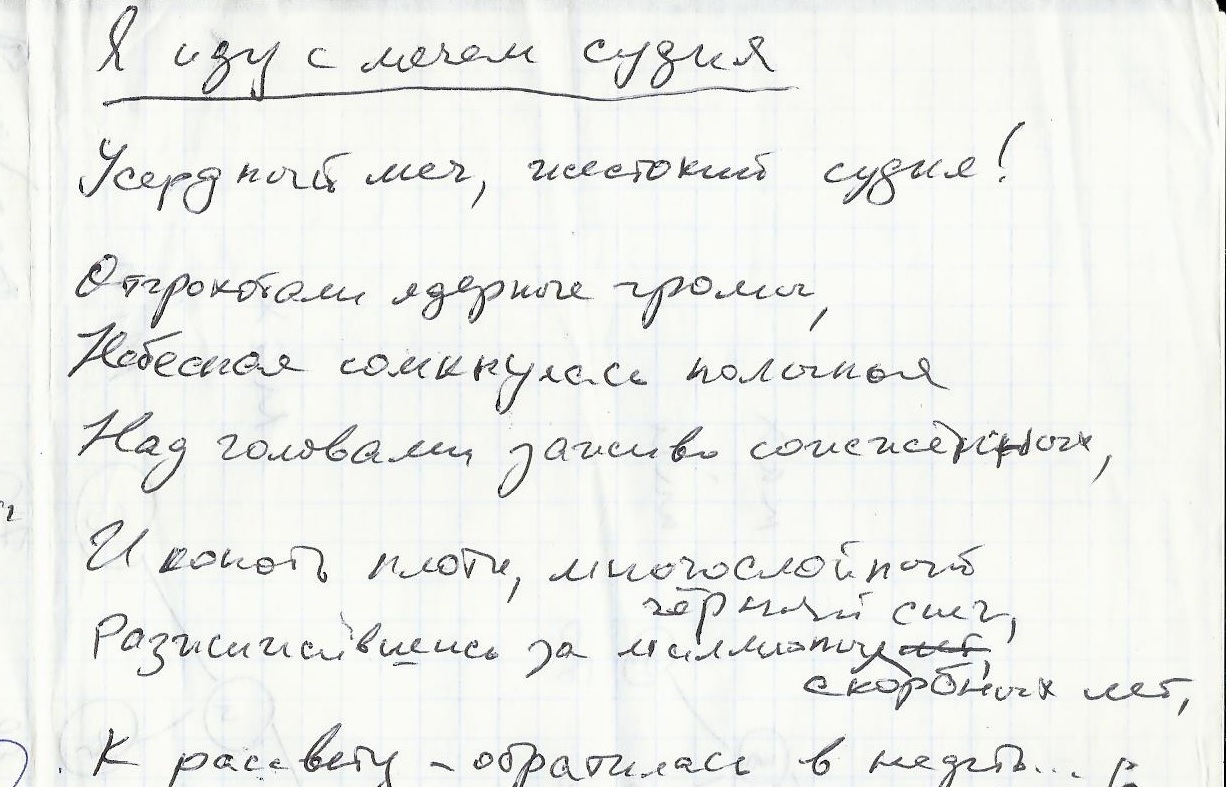 Я иду с мечем судия
Усердный меч, жестокий судия!
Отгрохотали ядерные громы,
Небесная сомкнулась полынья
Над головами заживо сожжённых,
И копоть плоти, многослойный
чёрный снег,
Разжижившись за миллионы лет,
скорбных лет,
К рассвету - обратилась в нефть...